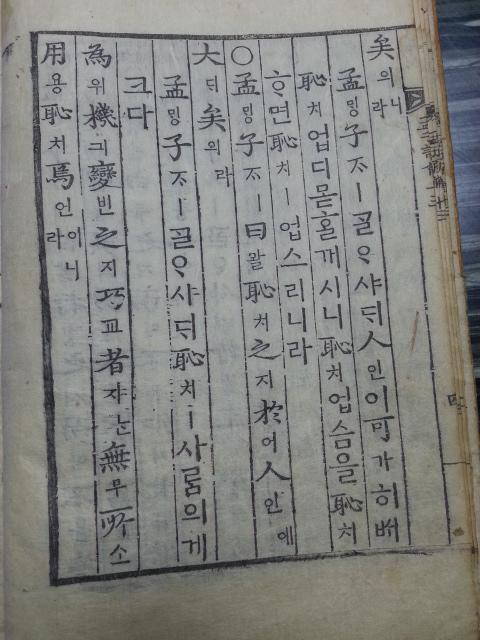 矣의니라
孟밍子ᄌᆞㅣᄀᆞᆯᄋᆞ샤ᄃᆡ人인이可가히ᄡᅥ
恥치업디몯홀꺼시니恥치업슴을恥치
ᄒᆞ면恥치ㅣ업스리니라
○孟밍子ᄌᆞㅣ曰왈恥치之지於어人인에
大대矣의라
孟밍子ᄌᆞㅣᄀᆞᆯᄋᆞ샤ᄃᆡ恥치ㅣ사ᄅᆞᆷ의게
크다
為위機긔變변之지巧교者쟈ᄂᆞᆫ無무所소
用용恥치焉언이니라